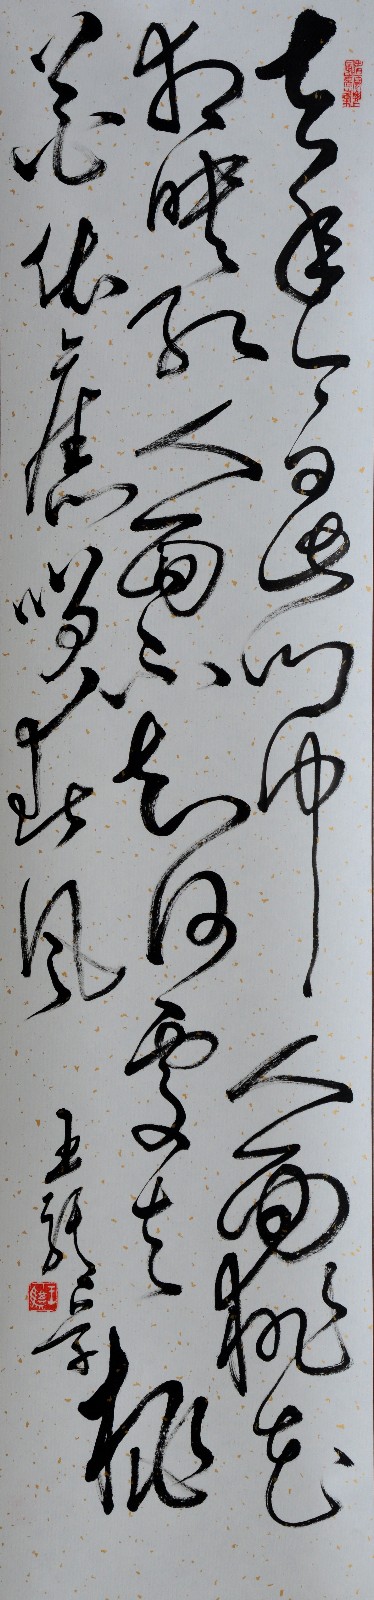 去年今日此門中人面桃花
相映紅人面不知何處去桃
花依舊笑春風
王